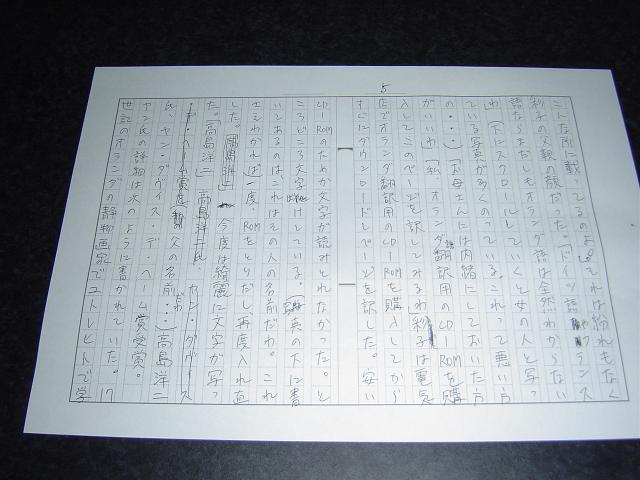 5
こんな所に載ってるのよ。それは紛れもなく
彩子の父親の顔だった。「ドイツ語やフランス
語ならまだしもオランダ語は全然わからない
わ」下にスクロールしていくと女の人と写っ
ている写真が多くのっている。これって悪い方
の・・・」「お母さんには内緒にしておいた方
がいいわ」「私、オランダ語翻訳用のCD-ROMを購
入してこのページを訳してみるわ」彩子は電気
店でオランダ翻訳用のCD-ROMを購入してから
すぐにダウンロードしページを訳した。安い
CD-ROMのためか文字が読みとれなかった。と
ころどころ文字化けしている。「写真の下に書
いてあるのは、これはその人の名前だわ。これ
さえわかれば」一度、ROMをとりだし、再度入れ直
した。今度は綺麗に文字が写っ
た。「高島洋二
父の名前・・・」高島洋二
氏、ヤン・ダヴィス・デ・ヘーム賞受賞。
ヤン氏の詳細は次のように書かれていた。17
世紀のオランダの静物画家でユトレヒトで学